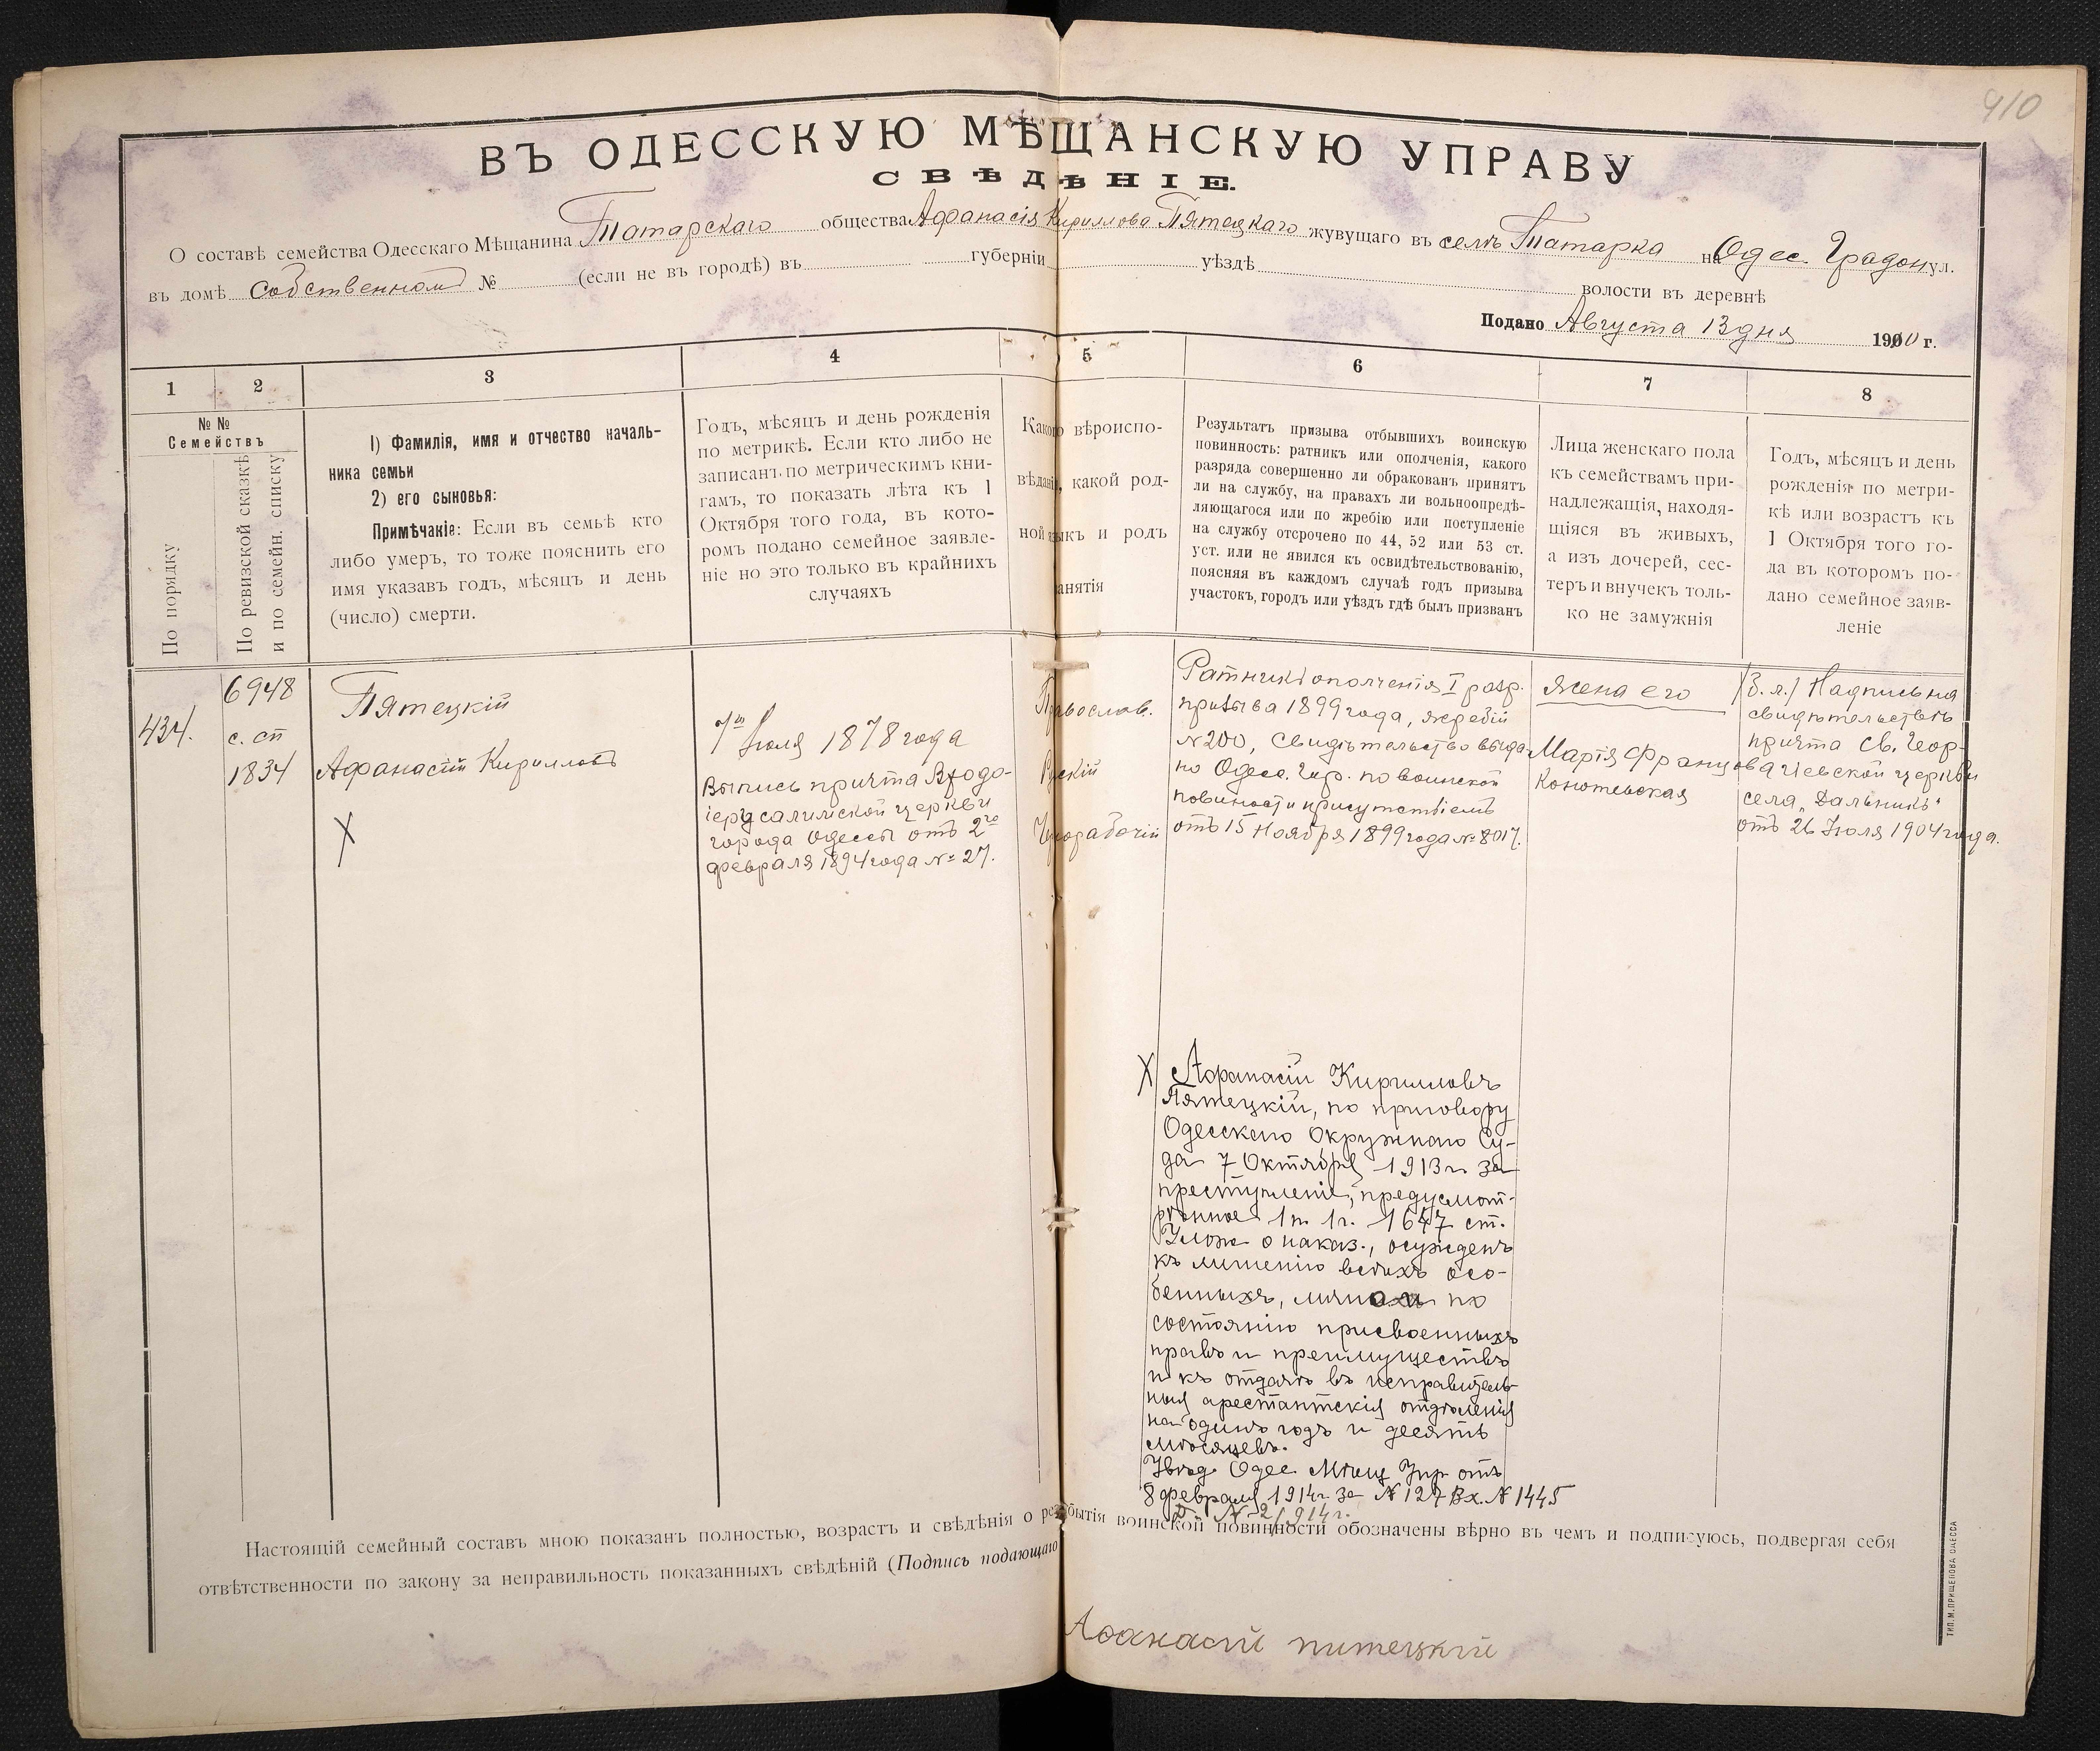 410
ВЪ ОДЕССКУЮ МѢЩАНСКУЮ УПРАВУ
СВѢДѢНІЕ.
О составѣ семейства Одесскаго Мѣщанина Татарскаго общества Афанасія Кириллова Пятецкаго жувущаго въ селѣ Татарка на Одес. Градон ул.
въ домѣ собственномъ № (если не въ городѣ) въ губерніи уѣздѣ волости въ деревнѣ
Подано Августа 13 дня 1910 г.
1
2
3
4
5
6
7
8
№№
Семействъ
По порядку
По ревизской сказкѣ
и по семейн. списку
1) Фамилія, имя и отчество началь-
ника семьи
2) его сыновья:
Примѣчакіе: Если въ семьѣ кто
либо умеръ, то тоже пояснить его
имя указавъ годъ, мѣсяцъ и день
(число) смерти.
Годъ, мѣсяцъ и день рожденія
по метрикѣ. Если кто либо не
записанъ по метрическимъ кни-
гамъ, то показать лѣта къ 1
Октября того года, въ кото-
ромъ подано семейное заявле-
ніе но это только въ крайнихъ
случаяхъ
Какого вѣроиспо-
вѣданія, какой род-
ной языкъ и родъ
занятія
Результатъ призыва отбывшихъ воинскую
повинность: ратникъ или ополченія, какого
разряда совершенно ли обракованъ принятъ
ли на службу, на правахъ ли вольноопредѣ-
ляющагося или по жребію или поступленіе
на службу отсрочено по 44, 52 или 53 ст.
уст. или не явился къ освидѣтельствованію,
поясняя въ каждомъ случаѣ годъ призыва
участокъ, городъ или уѣздъ гдѣ былъ призванъ
Лица женскаго пола
къ семействамъ при-
надлежащія, находя-
щіяся въ живыхъ,
а изъ дочерей, сес-
теръ и внучекъ толь-
ко не замужнія
Годъ, мѣсяцъ и день
рожденія по метри-
кѣ или возрастъ къ
1 Октября того го-
да въ котоpомъ по-
дано семейное заяв-
леніе
434.
6948
с. сп
1834
Пятецкій
Афанасій Кирилловъ
X
7го Іюля 1878 года
Выпись причта Входо-
іерусалимской церкви
города Одессы отъ 2го
февраля 1894 года № 27.
Православ.
Рускій
Чернорабочій
Ратникъ ополченія I разр.
призыва 1899 года, жребій
№ 200, Свидѣтельство выда-
но Одес. Гор. по воинской
повиности присутствіемъ
отъ 15 Ноября 1899 года № 8017.
жена его
Марія Францова
Конотевская
(З. л.) Надпись на
свидѣтельствѣ
причта Св. Геор-
гіевской церкви
села „Дальникъ"
отъ 26 Іюля 1904 года.
X Афанасій Кирилловъ
Пятецкій, по приговору
Одесскаго Окружнаго Су-
да 7 Октября 1913 г. за
преступленіе, предусмот-
рѣнное 1 п. 1 ч. 1647 ст.
Улож. о наказ., осужденъ
къ лишенію всѣхъ осо-
бенныхъ, лично и по
состоянію присвоенныхъ
правъ и преимуществъ
и къ отдачѣ въ исправитель-
ныя арестантскія отдѣленія
на одинъ годъ и десять
мѣсяцевъ.
Увѣд. Одес. Мѣщ. Упр. отъ
8 февраля 1914 г. за № 127 Вх. № 1445
Д. № 2/914 г.
Настоящій семейный составъ мною показанъ полностью, возрастъ и свѣдѣнія о отбытія воинской повинности обозначены вѣрно въ чемъ и подписуюсь, подвергая себя
отвѣтственности по закону за неправильность показанныхъ свѣдѣній (Подпись подающаго
Афанасій питецкій
ТИП. М. ПРИЩЕПОВА ОДЕССА